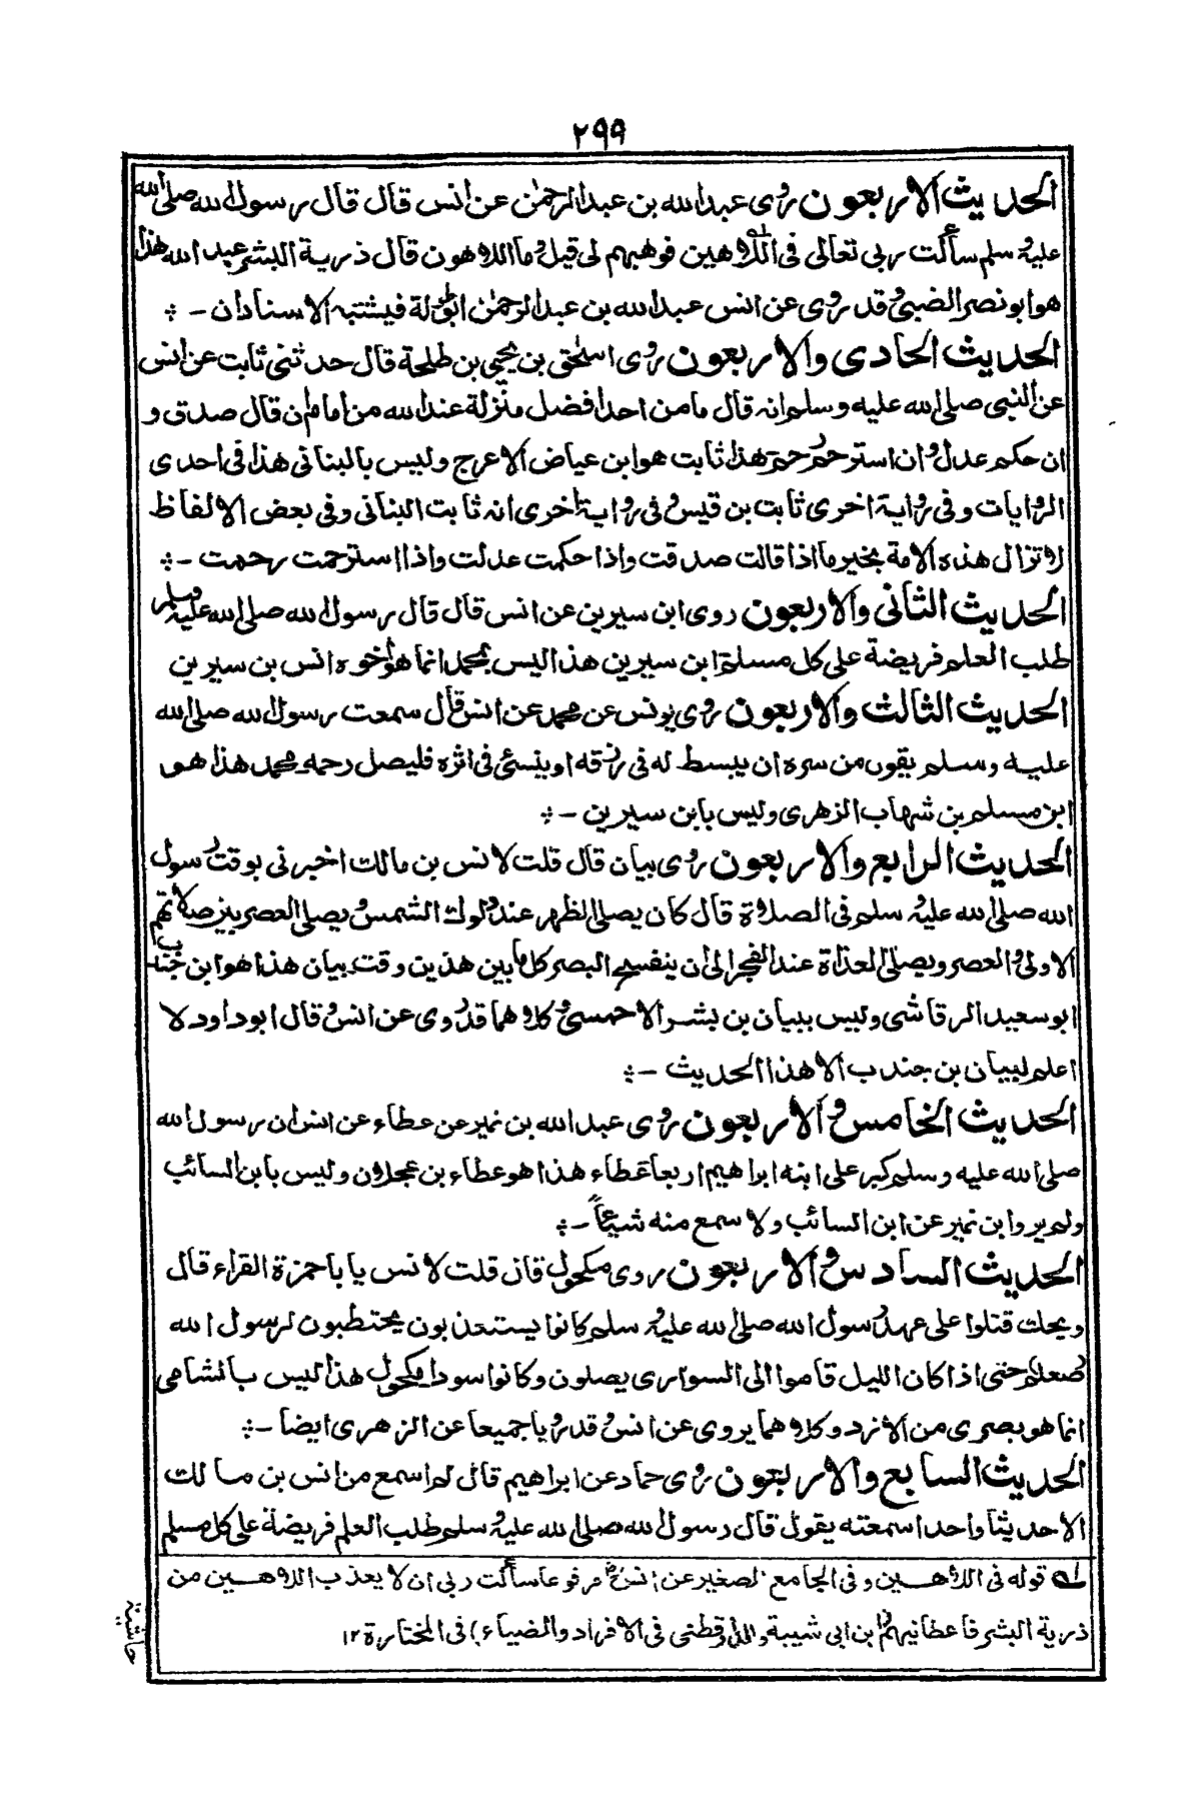 ٢٩٩
الحديث الاربعون روى عبدالله بن عبدالرحمٰن عن انس قال قال رسول الله صلى الله
عليه وسلم سألت ربي تعالى فى اللاهين فوهبهم لى قيل وما اللاهون قال ذرية البشر عبد الله هذا
هو ابو نصر الضبى وقد روى عن انس عبدالله بن عبدالرحمٰن ابو طوالة فيشتبه الاسنادان -
الحديث الحادى والاربعون روى اسحٰق بن يحيى بن طلحة قال حدثنى ثابت عن انس
عن النبى صلى الله عليه وسلم انه قال ما من احد افضل منزلة عند الله من امام ان قال صدق و
ان حكم عدل وان استرحم رحم هذا ثابت هو ابن عياض الاعرج وليس بالبنانى هذا فى احدى
الروايات وفى رواية اخرى ثابت بن قيس وفى رواية اخرى انه ثابت البنانى وفى بعض الالفاظ
لا تزال هذه الامة بخير ما اذا قالت صدقت واذا حكمت عدلت واذا استرحمت رحمت -
الحديث الثانى والاربعون روى ابن سيرين عن انس قال قال رسول الله صلى الله عليه وسلم
طلب العلم فريضة على كل مسلم ابن سيرين هذا ليس بمحمد انما هو اخوه انس بن سيرين
الحديث الثالث والاربعون روى يونس عن محمد عن انس قال سمعت رسول الله صلى الله
عليه وسلم يقول من سره ان يبسط له فى رزقه او ينسئ فى اثره فليصل رحمه محمد هذا هو
ابن مسلم بن شهاب الزهرى وليس بابن سيرين -
الحديث الرابع والاربعون روى بيان قال قلت لانس بن مالك اخبرنى بوقت رسول
الله صلى الله عليه وسلم فى الصلاة قال كان يصلى الظهر عند دلوك الشمس ويصلى العصر بين صلاتكم
الاولى والعصر ويصلى الغداة عند الفجر الى ان ينفسح البصر كل ما بين هذين وقت بيان هذا هو ابن جندب
ابو سعيد الرقاشى وليس ببيان بن بشر الاحمسى وكلاهما قد روى عن انس وقال ابو داود لا
اعلم لبيان بن جندب الا هذا الحديث -
الحديث الخامس والاربعون روى عبد الله بن نمير عن عطاء عن انس ان رسول الله
صلى الله عليه وسلم كبر على ابنه ابراهيم اربعا عطاء هذا هو عطاء بن عجلان وليس بابن السائب
ولم يرو ابن نمير عن ابن السائب ولا سمع منه شيئاً -
الحديث السادس والاربعون روى مكحول قال قلت لانس يا باحمزة القراء قال
ويحك قتلوا على عهد رسول الله صلى الله عليه وسلم كانوا يستعذبون يحتطبون لرسول الله
صلعم حتى اذا كان الليل قاموا الى السوارى يصلون وكانوا سودا مكحول هذا ليس بالشامى
انما هو بصرى من الازد وكلاهما يروى عن انس وقد رويا جميعا عن الزهرى ايضا -
الحديث السابع والاربعون روى حماد عن ابراهيم قال لم اسمع من انس بن مالك
الا حديثا واحدا سمعته يقول قال رسول الله صلى الله عليه وسلم طلب العلم فريضة على كل مسلم
له قوله فى اللاهين وفى الجامع الصغير عن انس مرفوعا سألت ربى ان لا يعذب اللاهين من
ذرية البشر فاعطانيهم ابن ابى شيبة والدارقطنى فى الافراد والضياء فى المختارة ١٢
حاشية